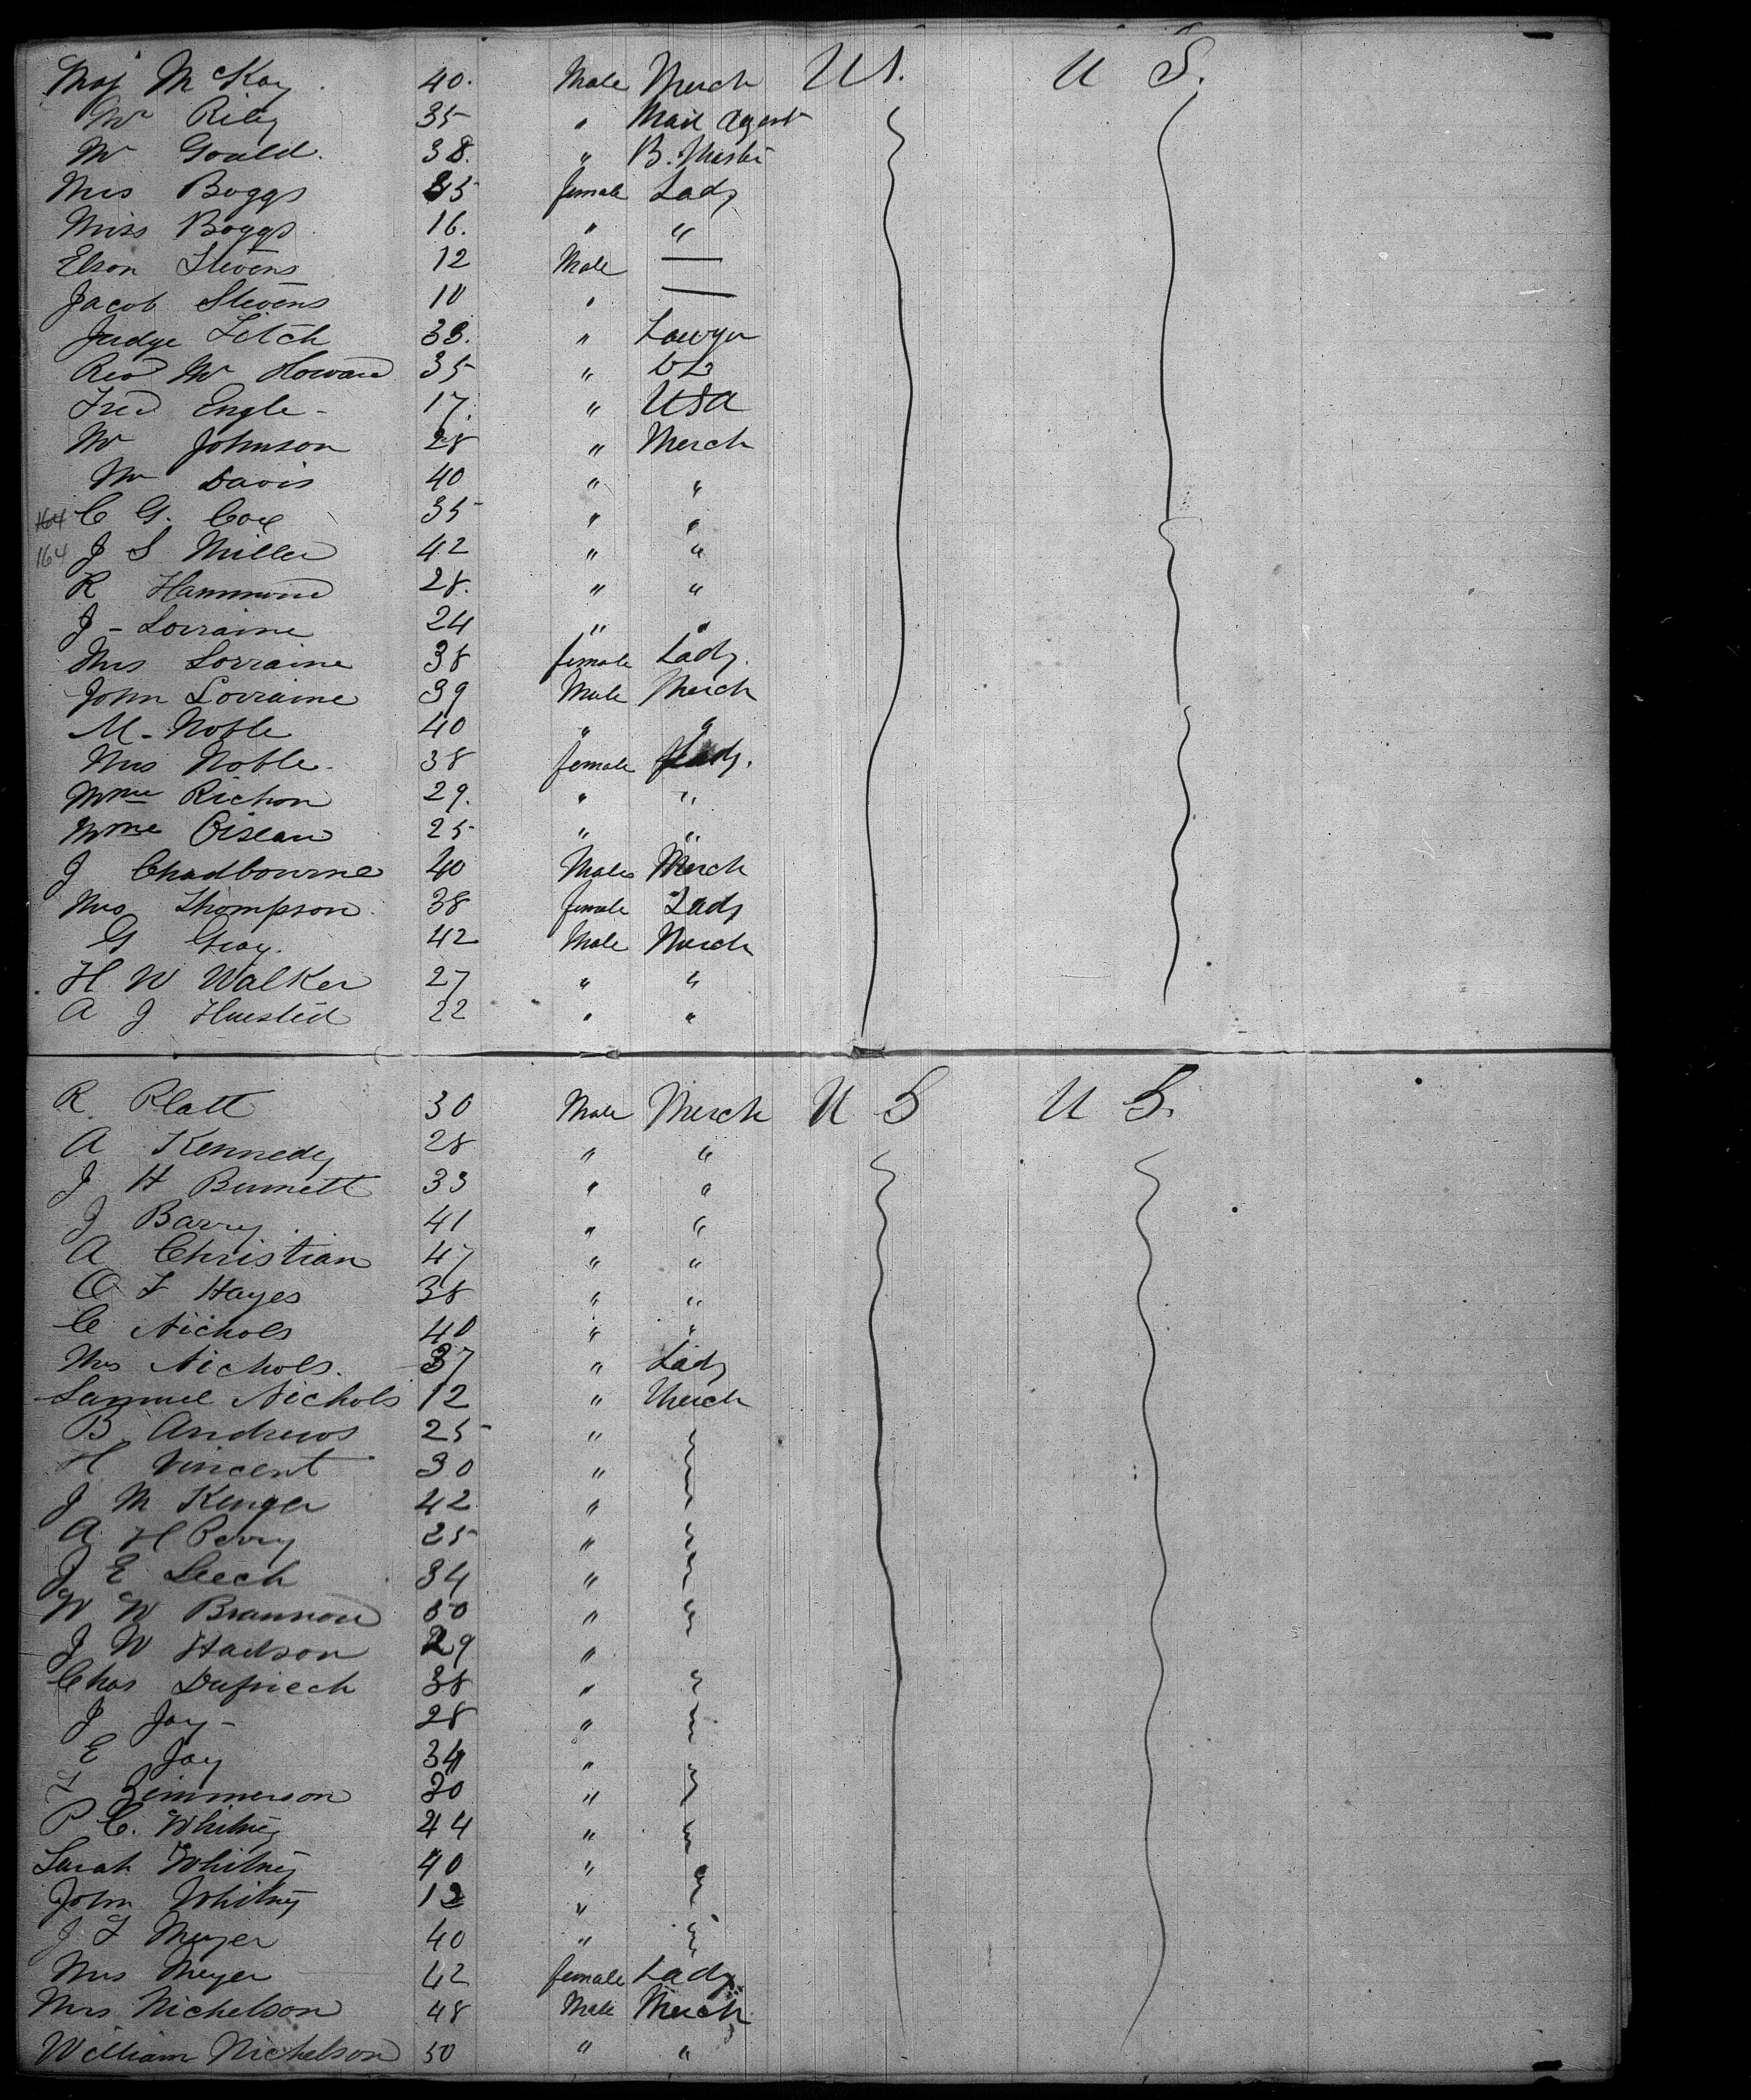 Maj McKay 40. Male Merch US. U S.
Mr Riley 35 " Mail Agent
Mr Goald. 38. "
Mrs Boggs 35 female Lady
Miss Boggs 16. " "
Elson Stevens 12 Male —
Jacob Stevens 10 " —
Judge Fitch 38. " Lawyer
Revd Mr Howard 35 "
Fred Engle - 17. " USA
Mr Johnson 28 " Merch
Mr Davis 40 " "
164 C G. Cox 35 " "
164 J S Miller 42 " "
R Hammond 28. " "
J - Lorraine 24 " "
Mrs Lorraine 38 female Lady.
John Lorraine 39 Male Merch
M - Noble 40 " "
Mrs Noble - 38 female Lady.
Mme Richon 29. " "
Mme Oiseau 25 " "
J Chadbourne 40 Male Merch
Mrs Thompson 38 female Lady
G Gray. 42 Male Merch
H W Walker 27 " "
A J Huested 22 " "
R. Platt 30 Male Merch U S U S.
A Kennedy 28 " "
J H Bennett 33 " "
J Barry. 41 " "
A Christian 47 " "
O F Hayes 38 " "
C Nichols 40 " "
Mrs Nichols. 37 " Lady
Samuel Nichols 12 " Merch
B Andrews 25 "
H Vincent 30 "
J M Kenger 42 "
A H Perry 25 "
J E Leech 34 "
W W Brannon 50 "
J W Hadson 29 "
Chas Dufriech 38 "
J Jay - 28 "
E Jay 34 "
Zimmerson 30 "
P C. Whitney 44 "
Sarah Whitney 40 "
John Whitney 12 "
J F Meyer 40 "
Mrs Meyer 42 female Lady
Mrs Nichelson 48 Male Merch
William Nichelson 50 " "